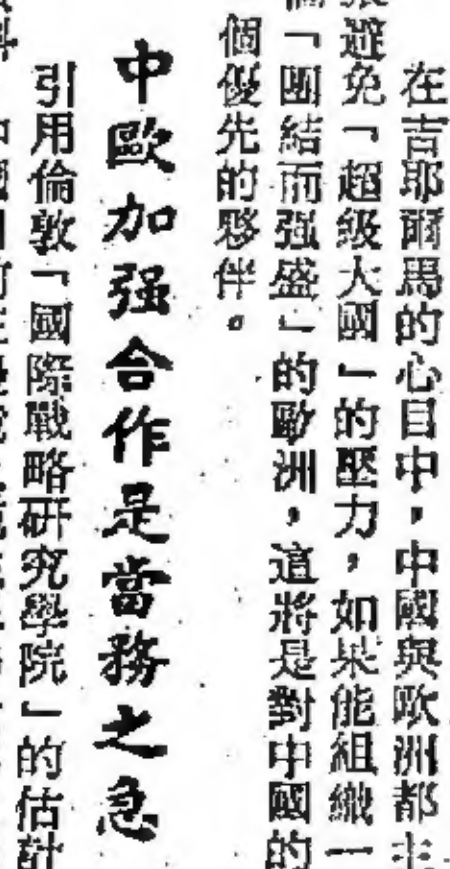 在吉耶爾馬的心目中，中國與歐洲都主
張避免「超級大國」的壓力，如果能組織一
個「團結而强盛」的歐洲，這將是對中國的
個優先的夥伴。
中歐加强合作是當務之急
引用倫敦「國際戰略研究學院」的估計